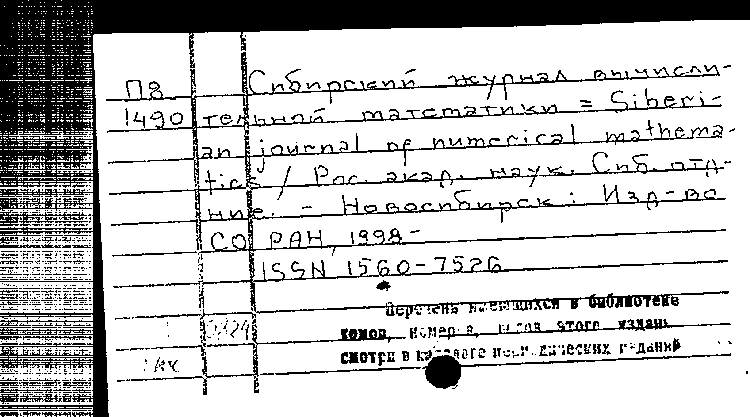 П8 Сибирский журнал вычисли-
1490 тельной математики = Siberi-
an journal of numerical mathema-
tics / Рос. акад. наук. Сиб. отд-
ние. - Новосибирск: Изд-во
СО РАН, 1998-
ISSN 1560-7526
Перечень имеющихся в библиотеке
томов, номеров, этого издания
смотри в каталоге периодических изданий